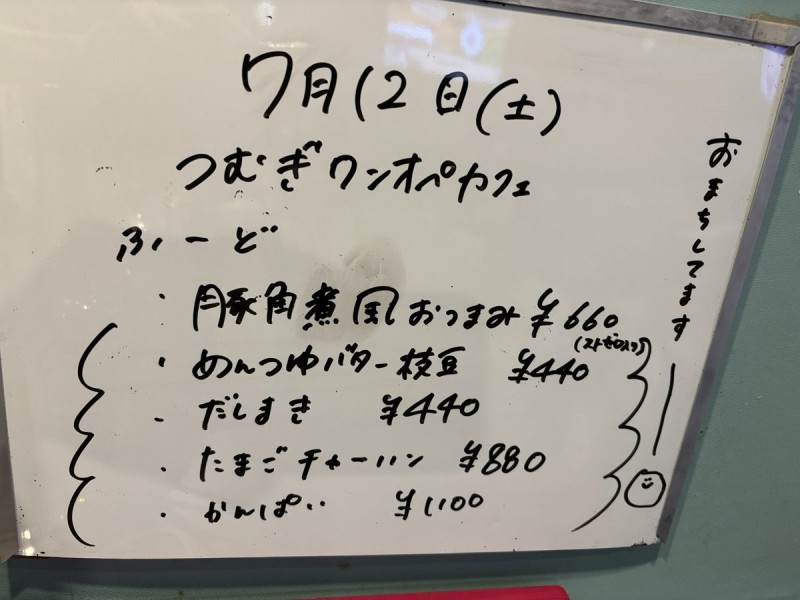 7月12日(土)
つむぎワンオペカフェ
ふーど
・豚角煮風おつまみ ¥660
(ストゼロ入り)
・めんつゆバター枝豆 ¥440
・だしまき ¥440
・たまごチャーハン ¥880
・かんぱい ¥1100
おまちしてますー